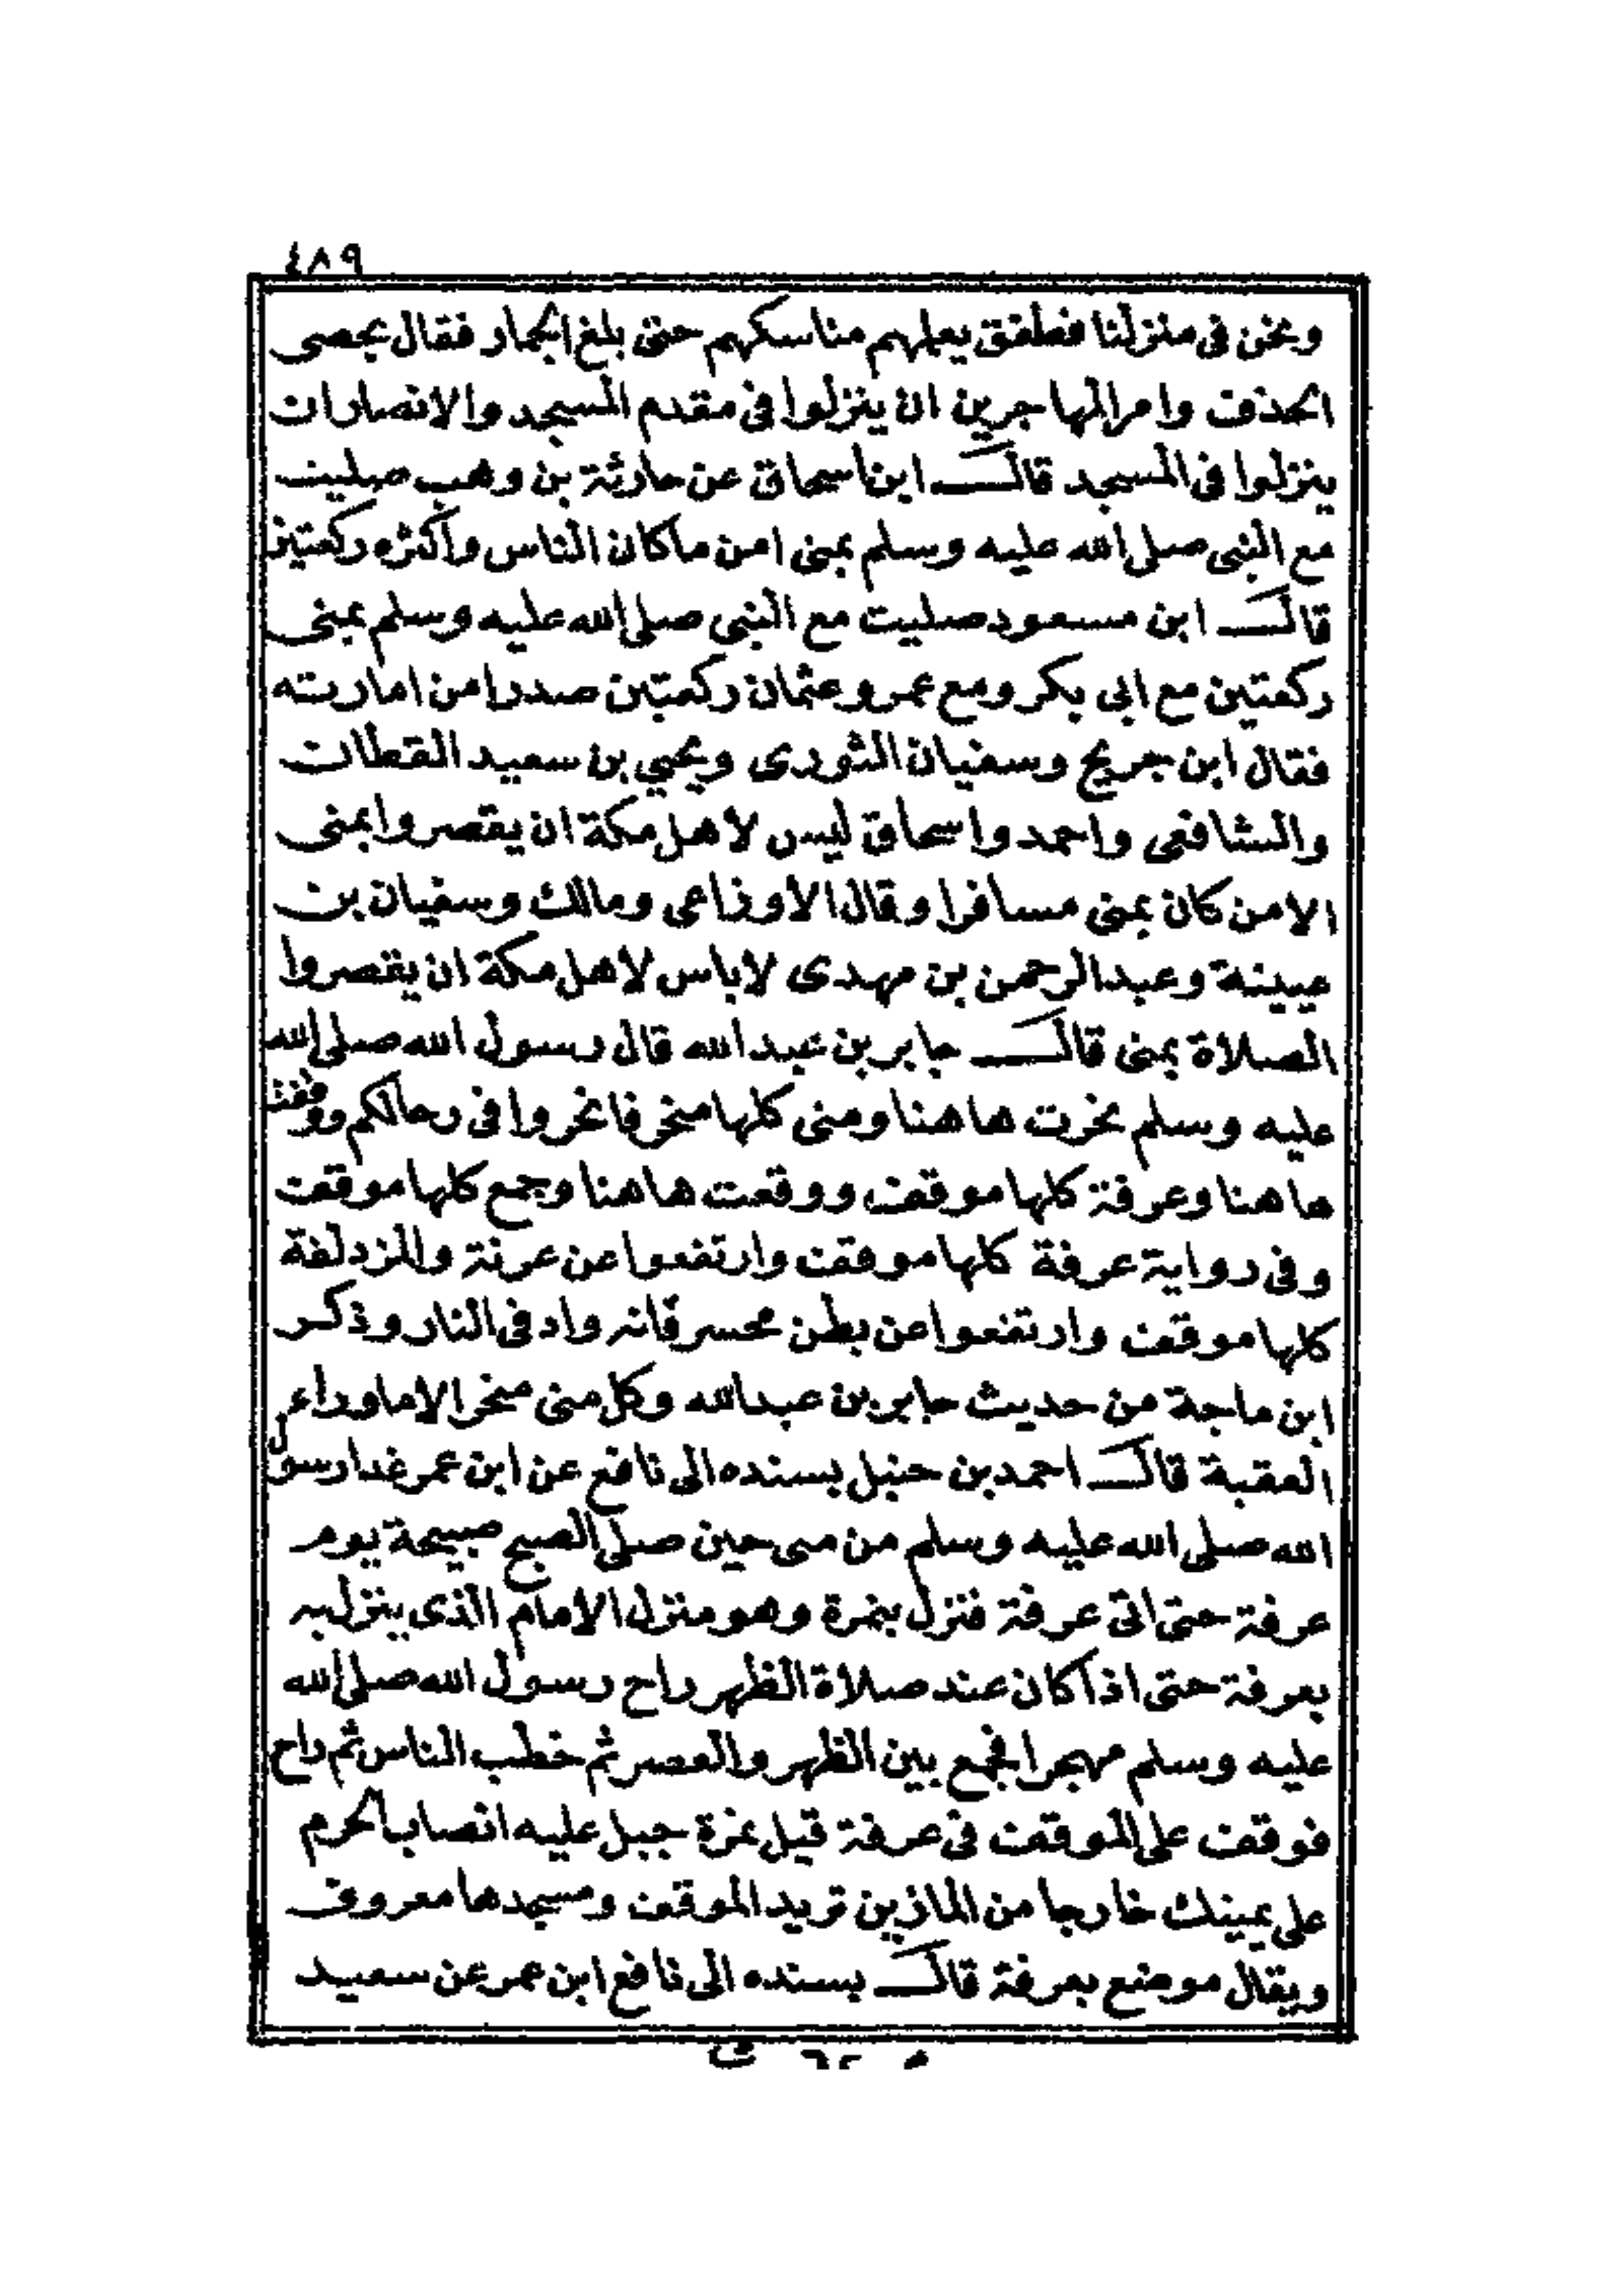 ٤٨٩
ونحن فى منزلنا فطفق يعلمهم مناسكهم حتى بلغ الجمار فقال بحصى
الحذف وامر المهاجرين ان ينزلوا فى مقدم المسجد والانصار ان
ينزلوا فى المسجد قال ابن اسحاق عن حارثة بن وهب صليت
مع النبى صلى الله عليه وسلم بمنى امن ما كان الناس واكثره ركعتين
قال ابن مسعود صليت مع النبى صلى الله عليه وسلم بمنى
ركعتين مع ابى بكر ومع عمر وعثمان ركعتين صدرا من امارته
فقال ابن جريج وسفيان الثورى ويحيي بن سعيد القطان
والشافعى واحمد واسحاق ليس لاهل مكة ان يقصروا بمنى
الا من كان بمنى مسافرا وقال الاوزاعى ومالك وسفيان بن
عيينة وعبد الرحمن بن مهدى لا باس لاهل مكة ان يقصروا
الصلاة بمنى قال جابر بن عبد الله قال رسول الله صلى الله
عليه وسلم نحرت هاهنا ومنى كلها منحر فانحروا فى رحالكم ووقفت
هاهنا وعرفة كلها موقف ووقفت هاهنا وجمع كلها موقف
وفى رواية عرفة كلها موقف وارتفعوا عن عرنة والمزدلفة
كلها موقف وارتفعوا عن بطن محسر فانه واد فى النار وذكر
ابن ماجة من حديث جابر بن عبد الله وكل منى منحر الا ماوراء
العقبة قال احمد بن حنبل بسنده الى نافع عن ابن عمر غدا رسول
الله صلى الله عليه وسلم من منى حين صلى الصبح صبيحة يوم
عرفة حتى اتى عرفة فنزل بنمرة وهو منزل الامام الذى ينزل به
بعرفة حتى اذا كان عند صلاة الظهر راح رسول الله صلى الله
عليه وسلم مهجرا فجمع بين الظهر والعصر ثم خطب الناس ثم راح
فوقف على الموقف فى عرفة قيل نمرة جبل عليه انصاب الحرم
على يمينك خارجا من المازين تريد الموقف ومسجدها معروف
ويقال موضع بعرفة قال بسنده الى نافع ابن عمر عن سعيد